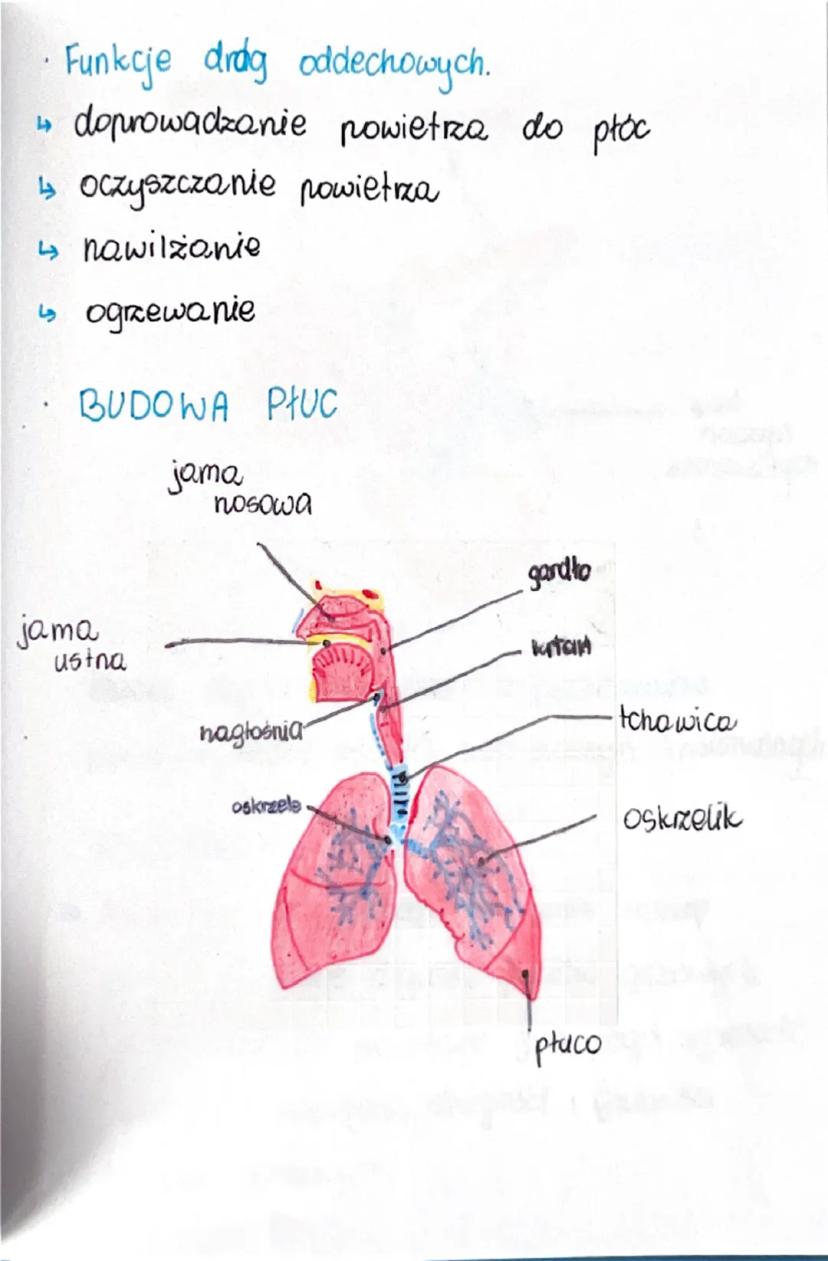 · Funkcje dróg oddechowych.
↳ doprowadzanie powietrza do płóc
↳ oczyszczanie powietrza
↳ nawilżanie
↳ ogrzewanie
· BUDOWA PŁUC
jama
nosowa
gardło
jama
ustna
krtań
nagłośnia
tchawica
oskrzele
oskrzelik
płuco